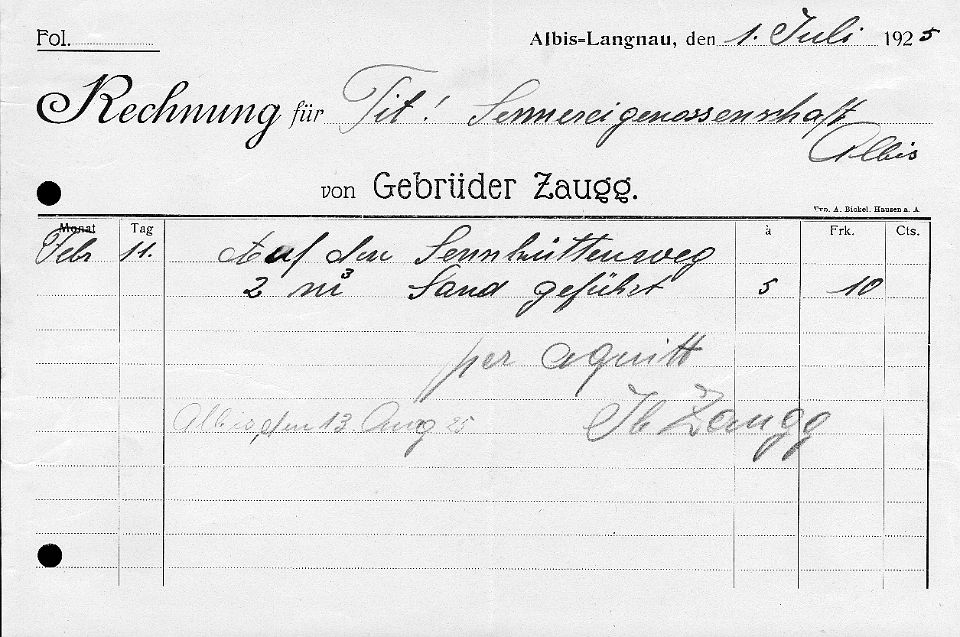 Fol.
Albis-Langnau, den 1. Juli 1925
Rechnung für Tit! Sennereigenossenschaft
Albis
von Gebrüder Zaugg.
Typ. A. Bickel, Hausen a. A.
Monat Tag à Frk. Cts.
Febr 11. Auf den Sennhüttenweg
2 m³ Sand geführt 5 10
per aquitt
Albis, den 13. Aug 25 Jb Zaugg